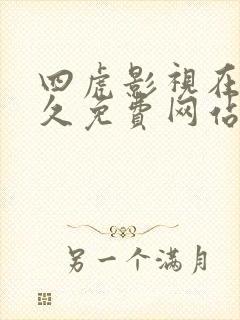 四虎影視在
久免費网估
另一个满月